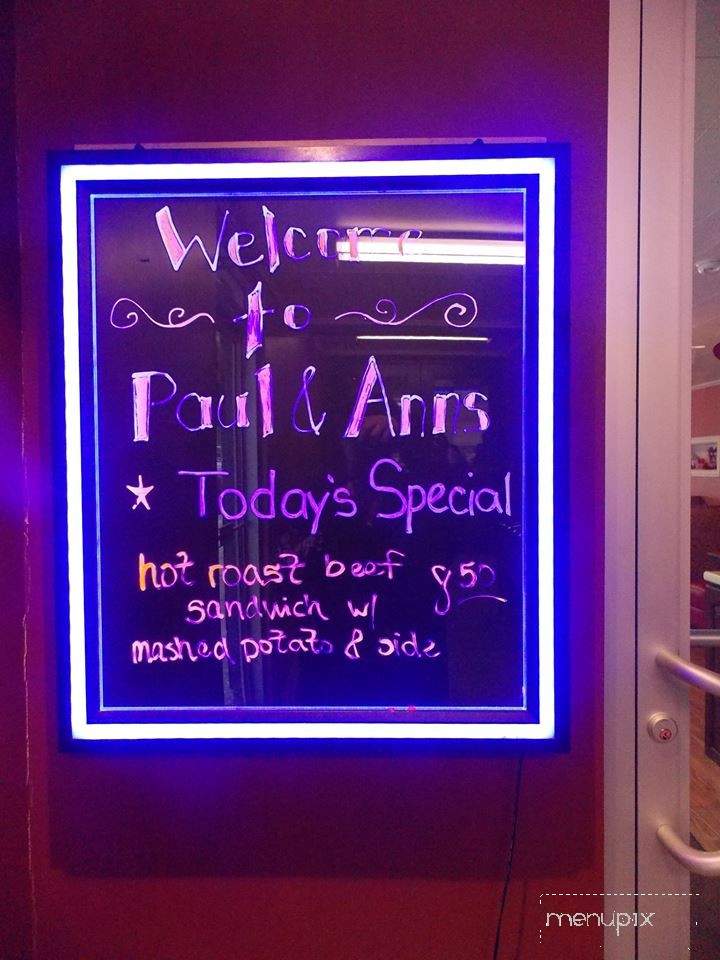 Welcome
to
Paul & Anns
Today's Special
hot roast beef
sandwich w/
mashed potato & side
menupix